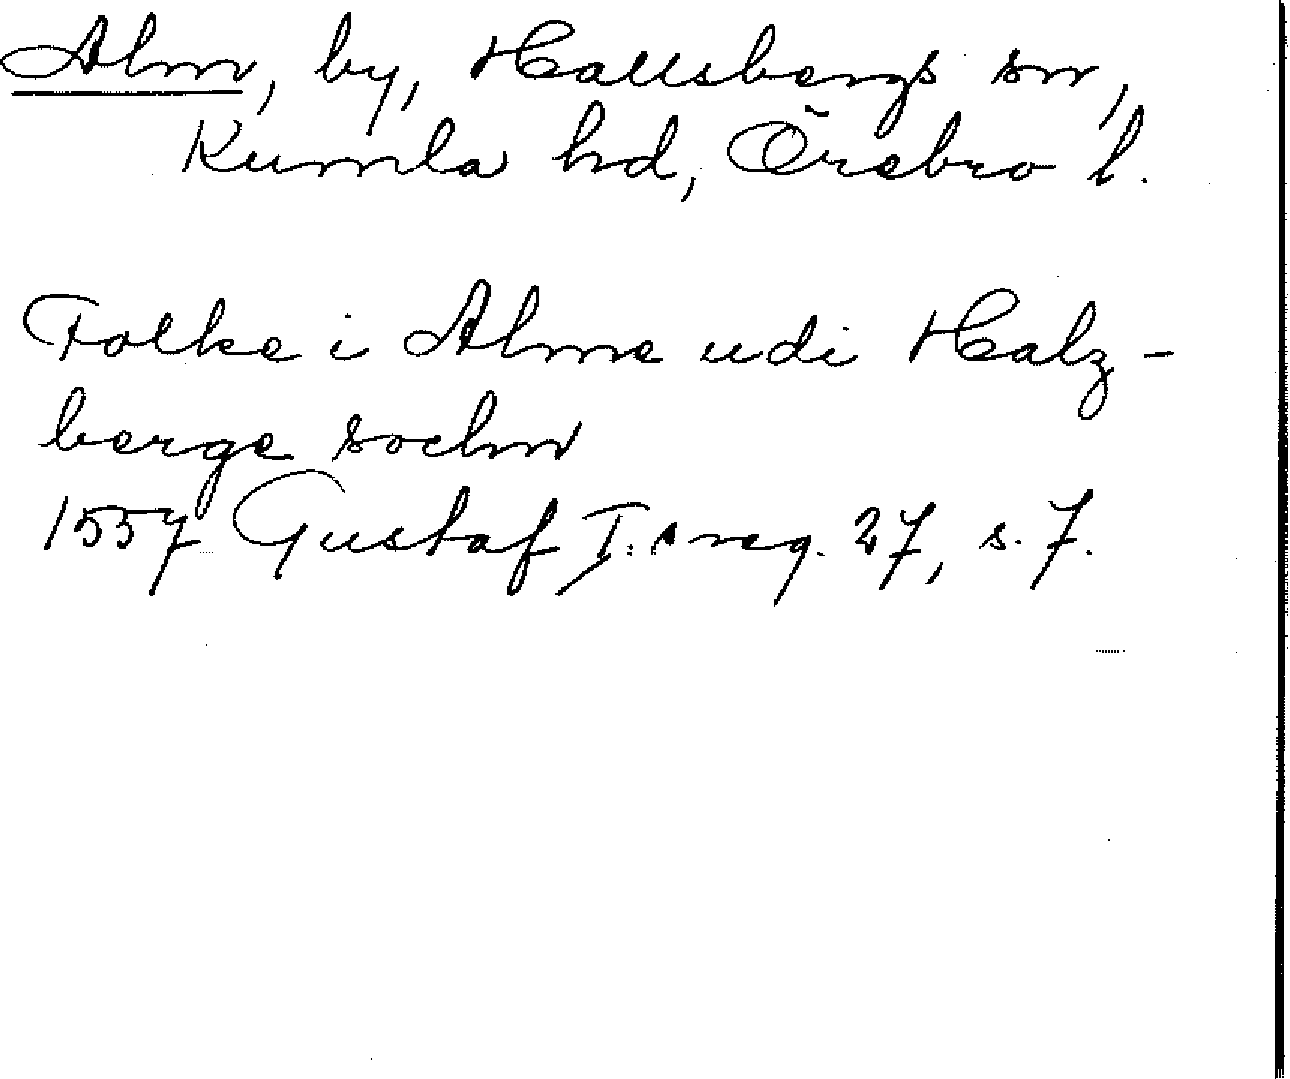 Alm, by, Hallsbergs sn,
Kumla hd, Örebro l.
Folke i Alme udi Halz-
berge sochn
1557 Gustaf I:s reg. 27, s. 7.